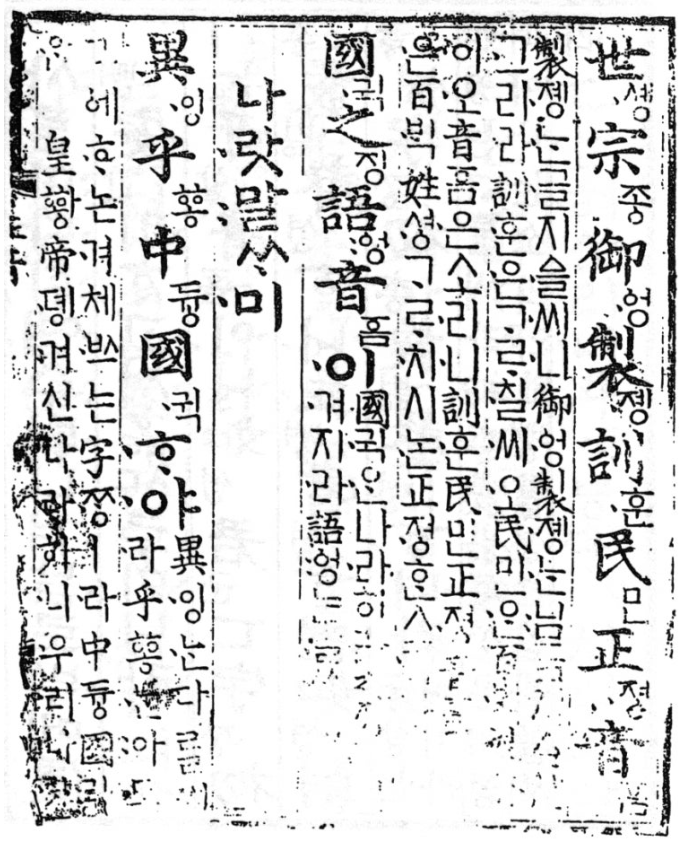 世솅宗종御엉製젱訓훈民민正졍音
製졩는글지슬씨니御엉製졩는님
그리라訓훈은ᄀᆞᄅᆞ칠씨오民민ᄋᆞᆫ百
이오音흠은소리니訓훈民민正졍
ᄋᆞᆫ百ᄇᆡᆨ姓셩ᄀᆞᄅᆞ치시논正졍ᄒᆞᆫ
國귁之징語엉音흠이
國귁ᄋᆞᆫ나라히
겨지라語엉는
나랏말ᄊᆞ미
異잉乎ᅘᅩᆼ中듕國귁ᄒᆞ야
異잉는다를
라乎ᅘᅩᆼ는아
ㄱ에ᄒᆞ논겨체ᄡᅳ는字ᄍᆞᆼㅣ라中듕國귁
ᄋᆞᆫ皇ᅘᅪᆼ帝뎽겨신나라히니우리나